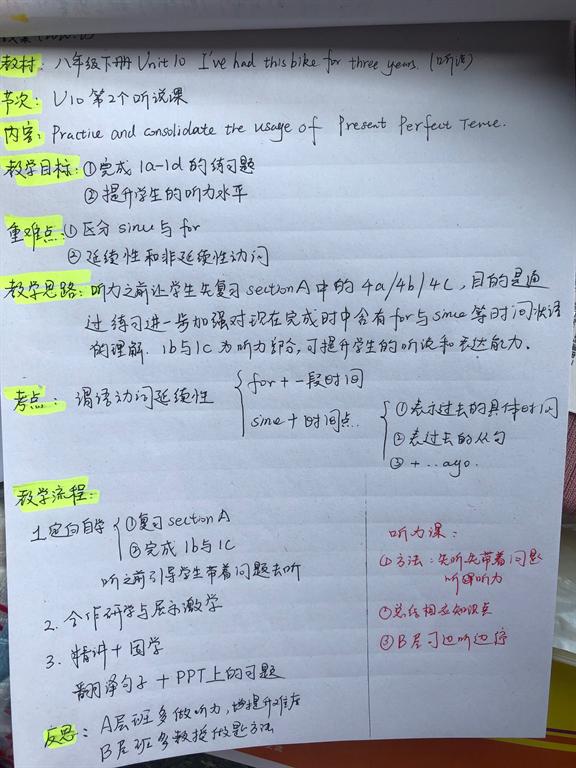 教材: 八年级下册 Unit 10 I've had this bike for three years. (听说)
节次: U10 第2个听说课
内容: Practice and consolidate the usage of Present Perfect Tense.
教学目标: ①完成1a-1d的练习题
②提升学生的听力水平
重难点: ①区分since与for
②延续性和非延续性动词
教学思路: 听力之前让学生先复习sectionA中的4a/4b/4c, 目的是通
过练习进一步加强对现在完成时中含有for与since等时间状语
的理解. 1b与1c为听力部分, 可提升学生的听说和表达能力.
考点: 谓语动词延续性
for+一段时间
since+时间点
①表示过去的具体时间
②表过去的从句
③+...ago.
教学流程:
1.定向自学
①复习sectionA
②完成1b与1c
听之前引导学生带着问题去听
2. 合作研学与展示激学
3. 精讲+固学
翻译句子+PPT上的习题
反思: A层班多做听力, 提升难度
B层班多教授做题方法
听力课:
①方法: 先听先带着问题
听听力
②总结相应知识点
③B层可边听边停